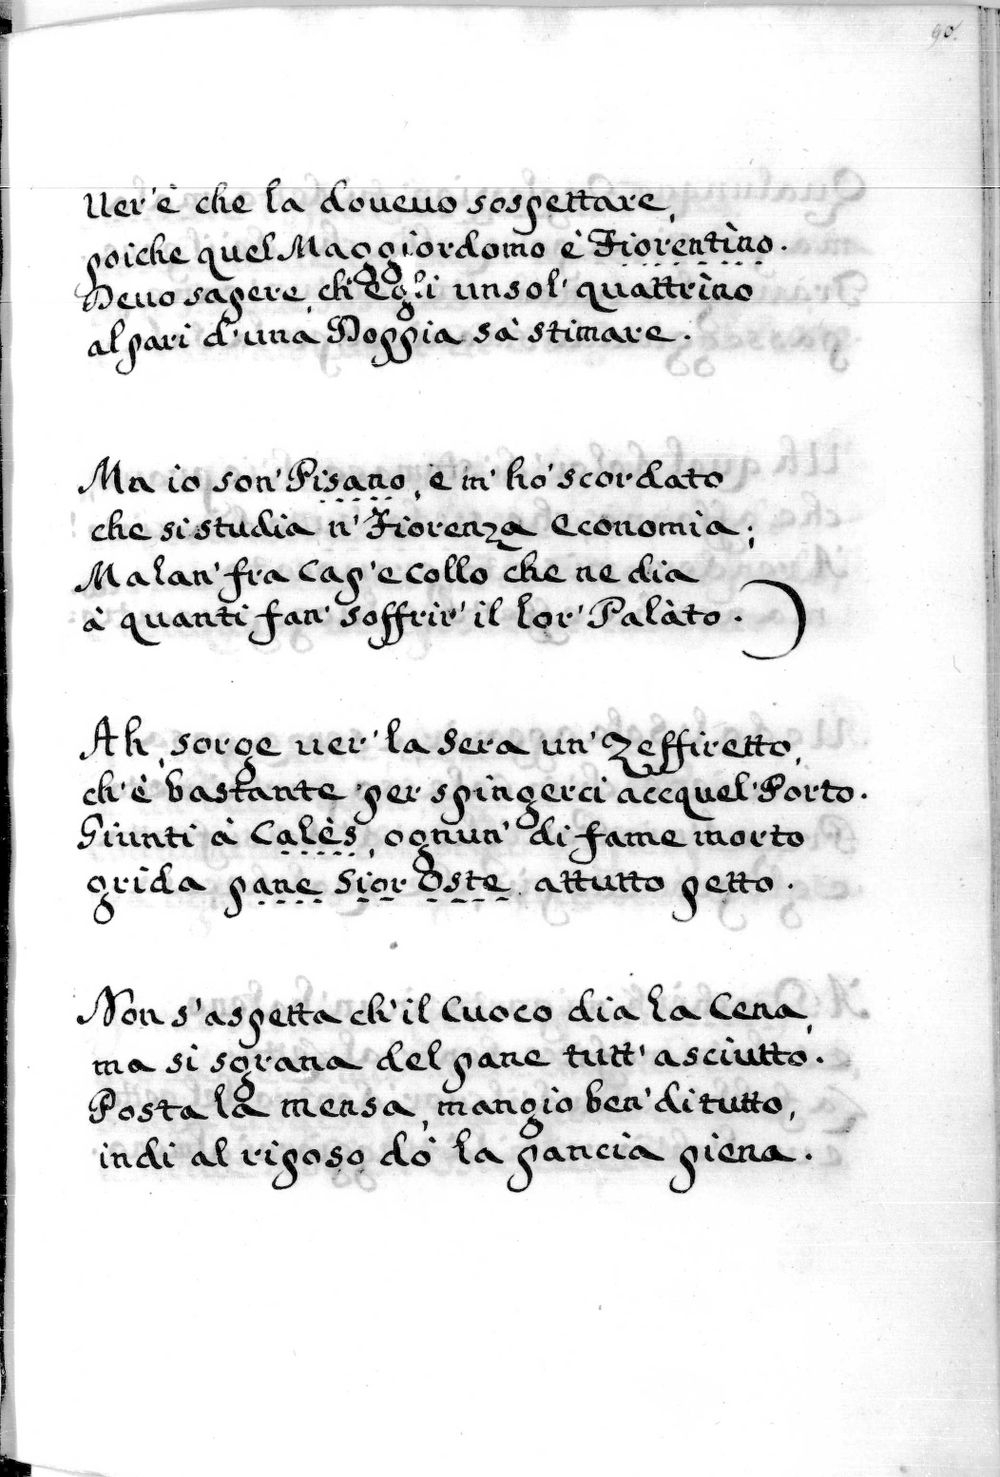 90.
Uer' è che la doueuo sospettare,
poiche quel Maggiordomo è Fiorentìno.
Deuo sapere, ch' egl'i un sol' quattrìno
al pari d' una Doppia sà stimare.
Ma io son' Pisano, e m' hò scordato
che si studia n' Fiorenza Economia;
Malan' fra Cap' e Collo che ne dia
à quanti fan' soffrir' il lor' Palàto.
Ah, sorge uer' la Sera un' Zeffiretto,
ch' è bastante per spingerci accquel' Porto.
Giunti à Calès, ognun' di fame morto
grida pane Sior Oste, attutto petto.
Non s' aspetta ch' il Cuoco dia la Cena,
ma si sprana del pane tutt' asciutto.
Posta la mensa, mangio ben' di tutto,
indi al riposo dò la pancia piena.